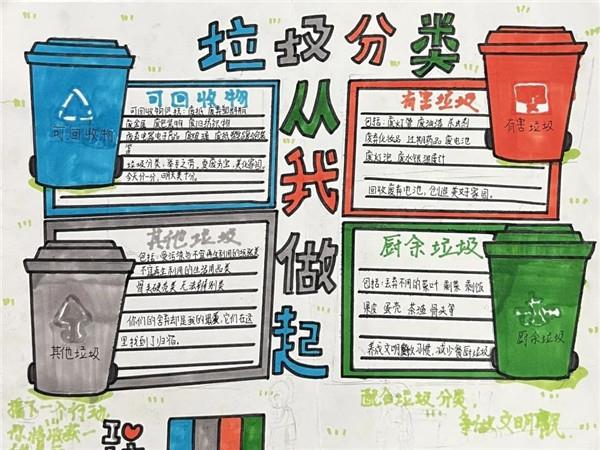 垃圾分类
从我做起
可回收物
可回收物
可回收物包括：废纸 废弃塑料瓶
废金属 废包装用 废旧纺织物
废弃电器电子产品 废玻璃 废纸塑铝复合包装
等
垃圾分类，举手之劳，变废为宝，美化家园。
今天分一分，明天美十分。
有害垃圾
有害垃圾
包括：废灯管 废油漆 杀虫剂
废弃化妆品 过期药品 废电池
废灯泡 废水银温度计
回收废弃电池，创造美好家园。
其他垃圾
其他垃圾
包括：受污染与不宜再生利用的纸张类
不宜再生利用的生活用品类
你们的舍弃却是我的温暖，它们在这
里找到了归宿。
厨余垃圾
厨余垃圾
包括：丢弃不用的菜叶 剩菜 剩饭
果皮 蛋壳 茶渣 骨头等
养成文明习惯，减少餐厨垃圾
播下一个行动
你将收获一
配合垃圾分类
争做文明市民